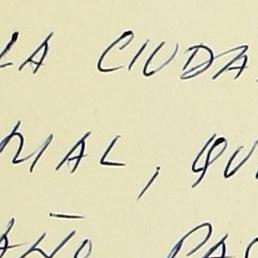 LA CIUDA
RIAL, QU
AÑO PAS